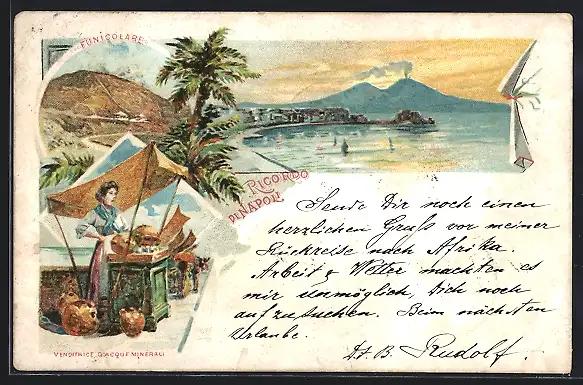 FUNICOLARE
RICORDO
DI NAPOLI
Sende Dir noch einen
herzlichen Gruß vor meiner
Rückreise nach Afrika.
Arbeit & Wetter machten es
mir unmöglich, Dich noch
aufzusuchen. Beim nächsten
Urlaube.
D. B. Rudolf.
VENDITRICE D'ACQUE MINERALI